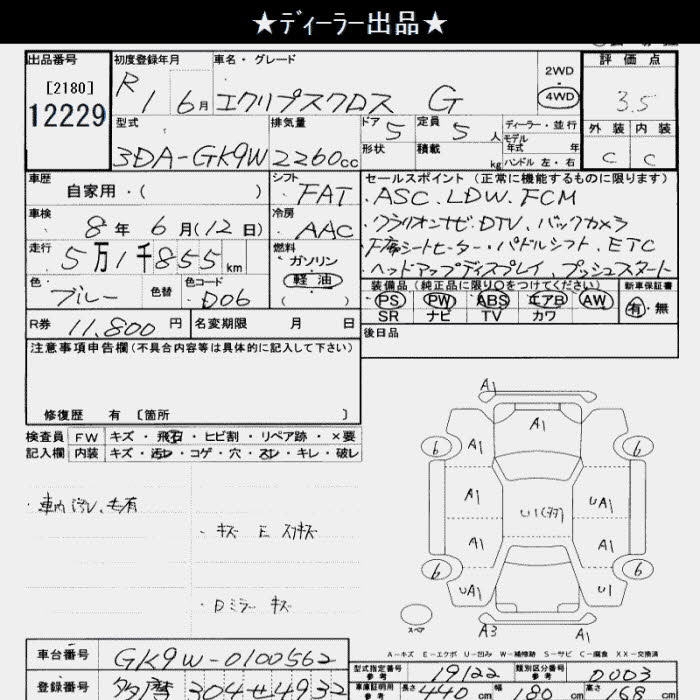 ★ディーラー出品★
出品番号 初度登録年月 車名・グレード 評価点
[2180] 12229 R1 6月 エクリプスクロス G 2WD 4WD 3.5
型式 排気量 ドア 5 定員 5人 ディーラー・並行 外装 内装
モデル年式 年
3DA-GK9W 2260cc 形状 積載 kg ハンドル 左・右 C C
車歴 自家用・( ) シフト FAT セールスポイント(正常に機能するものに限ります)
・ASC.LDW.FCM
車検 8年 6月(12日) 冷房 AAC
・クラリオンナビ.DTV.バックカメラ
走行 5万1千855km 燃料 ガソリン 軽油 ( )
シートヒーター・パドルシフト.ETC
・ヘッドアップディスプレイ.プッシュスタート
色 ブルー 色替 色コード D06
装備品(純正品に限り○をつけてください) 新車保証書
PS PW ABS エアB AW 有・無
SR ナビ TV カワ
R券 11,800円 名変期限 月 日 後日品
注意事項申告欄(不具合内容等は具体的に記入して下さい)
修復歴 有 〔箇所 〕
検査員 FW キズ・飛石・ヒビ割・リペア跡・×要
記入欄 内装 キズ・汚レ・コゲ・穴・スレ・キレ・破レ
・車内汚レ.毛有
・キズ E スリキズ
・Dミラー キズ
A1
A1
6 A1 6
A1 U1 UA1
A1 A1
6 6
UA1 U1
スペア A3 A1
A-キズ E-エクボ U-凹み W-補修跡 S-サビ C-腐食 XX-交換済
車台番号 GK9W-0100562
型式指定番号 参考 19122 類別区分番号 参考 0003
登録番号 多摩 304せ4932
車庫証明用 参考 長さ 440cm 幅 180cm 高さ 168cm